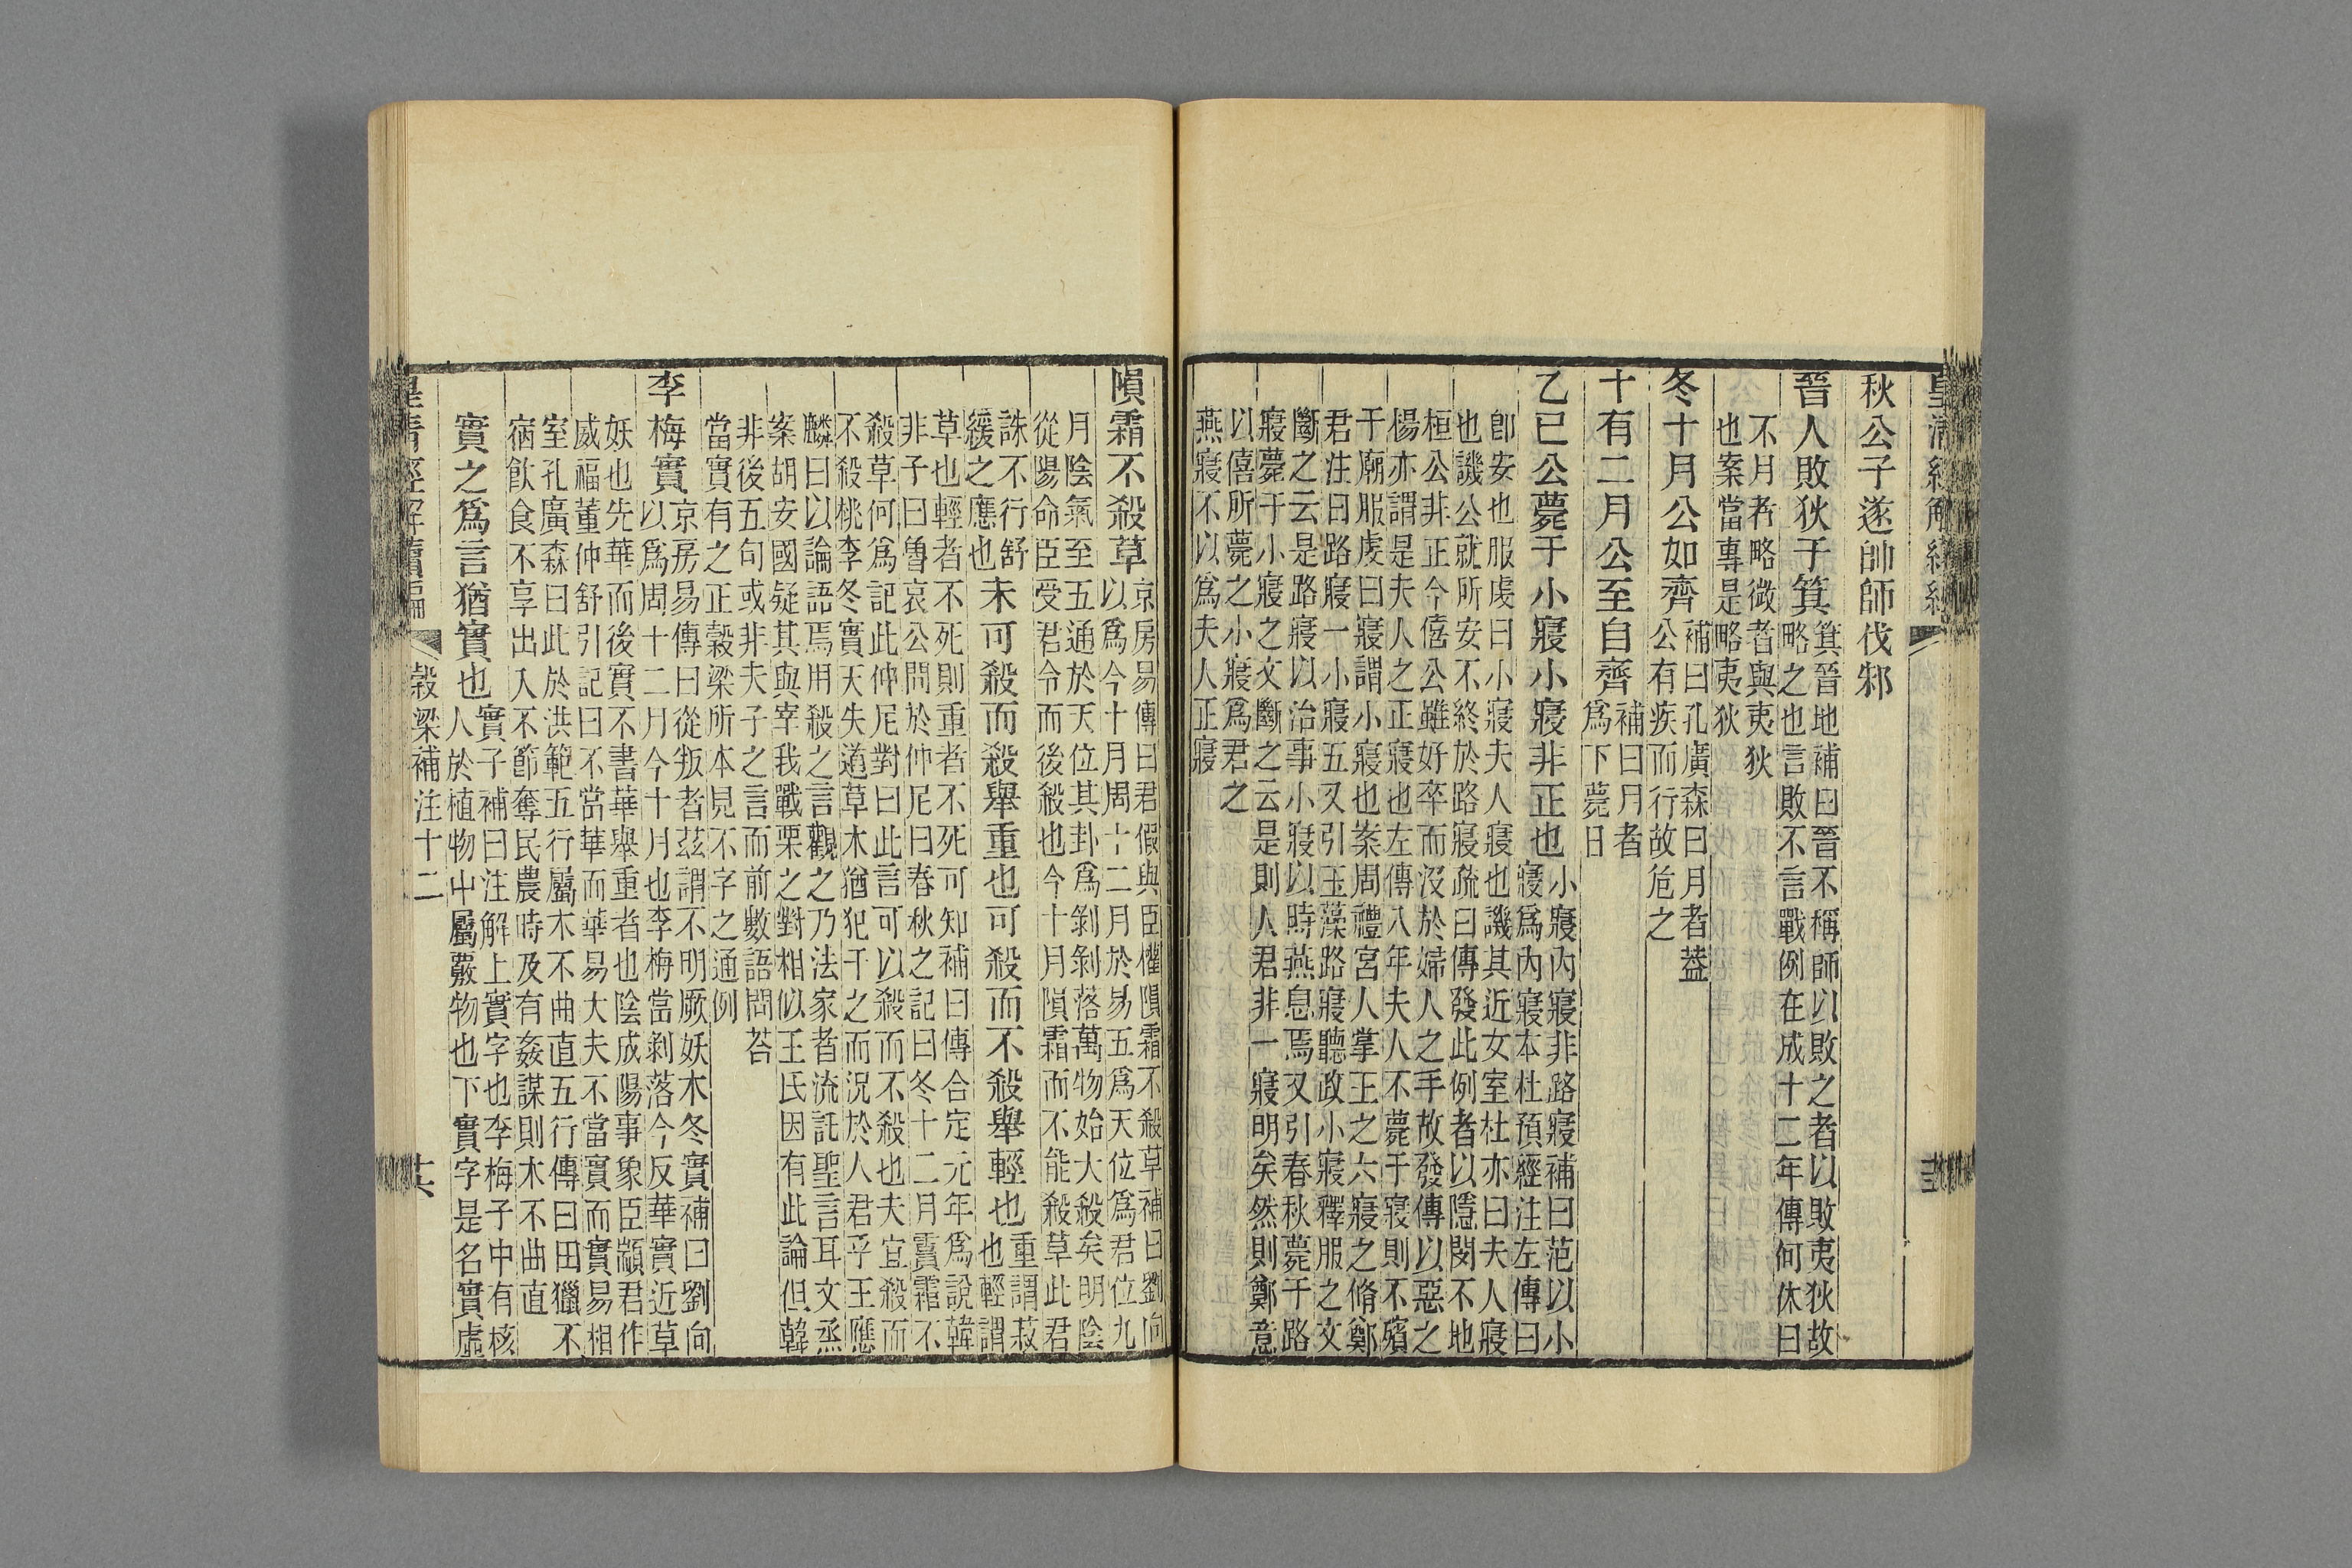 秋公子遂帥師伐邾
晉人敗狄于箕
箕晉地補曰晉不稱師以敗之者以敗夷狄故
略之也言敗不言戰例在成十二年傳何休曰
不月者略微者與夷狄
也案當專是略夷狄
冬十月公如齊
補曰孔廣森曰月者蓋
公有疾而行故危之
十有二月公至自齊
補曰月者
爲下薨日
乙巳公薨于小寢小寢非正也
小寢內寢非路寢補曰范以小
寢爲內寢本杜預經注左傳曰
卽安也服虔曰小寢夫人寢也譏其近女室杜亦曰夫人寢
也譏公就所安不終於路寢疏曰傳發此例者以隱閔不地
桓公非正今僖公雖好卒而沒於婦人之手故發傳以惡之
楊亦謂是夫人之正寢也左傳八年夫人不薨于寢則不殯
于廟服虔曰寢謂小寢也案周禮宮人掌王之六寢之脩鄭
君注曰路寢一小寢五又引玉藻路寢聽政小寢釋服之文
斷之云是路寢以治事小寢以時燕息焉又引春秋薨于路
寢薨于小寢之文斷之云是則人君非一寢明矣然則鄭意
以僖所薨之小寢爲君之
燕寢不以爲夫人正寢
隕霜不殺草
京房易傳曰君假與臣權隕霜不殺草補曰劉向
以爲今十月周十二月於易五爲天位爲君位九
月陰氣至五通於天位其卦爲剝剝落萬物始大殺矣明陰
從陽命臣受君令而後殺也今十月隕霜而不能殺草此君
誅不行舒
緩之應也
未可殺而殺舉重也可殺而不殺舉輕也
重謂菽
也輕謂
草也輕者不死則重者不死可知補曰傳合定元年爲說韓
非子曰魯哀公問於仲尼曰春秋之記曰冬十二月霣霜不
殺草何爲記此仲尼對曰此言可以殺而不殺也夫宜殺而
不殺桃李冬實天失道草木猶犯干之而況於人君乎王應
麟曰以論語焉用殺之言觀之乃法家者流託聖言耳文烝
案胡安國疑其與宰我戰栗之對相似王氏因有此論但韓
非後五句或非夫子之言而前數語問荅
當實有之正穀梁所本見不字之通例
李梅實
京房易傳曰從叛者茲謂不明厥妖木冬實補曰劉向
以爲周十二月今十月也李梅當剝落今反華實近草
妖也先華而後實不書華舉重者也陰成陽事象臣顓君作
威福董仲舒引記曰不當華而華易大夫不當實而實易相
室孔廣森曰此於洪範五行屬木不曲直五行傳曰田獵不
宿飲食不享出入不節奪民農時及有姦謀則木不曲直
實之爲言猶實也
實子補曰注解上實字也李梅子中有核
人於植物中屬覈物也下實字是名實虛
皇清經解續編
穀梁補注十二